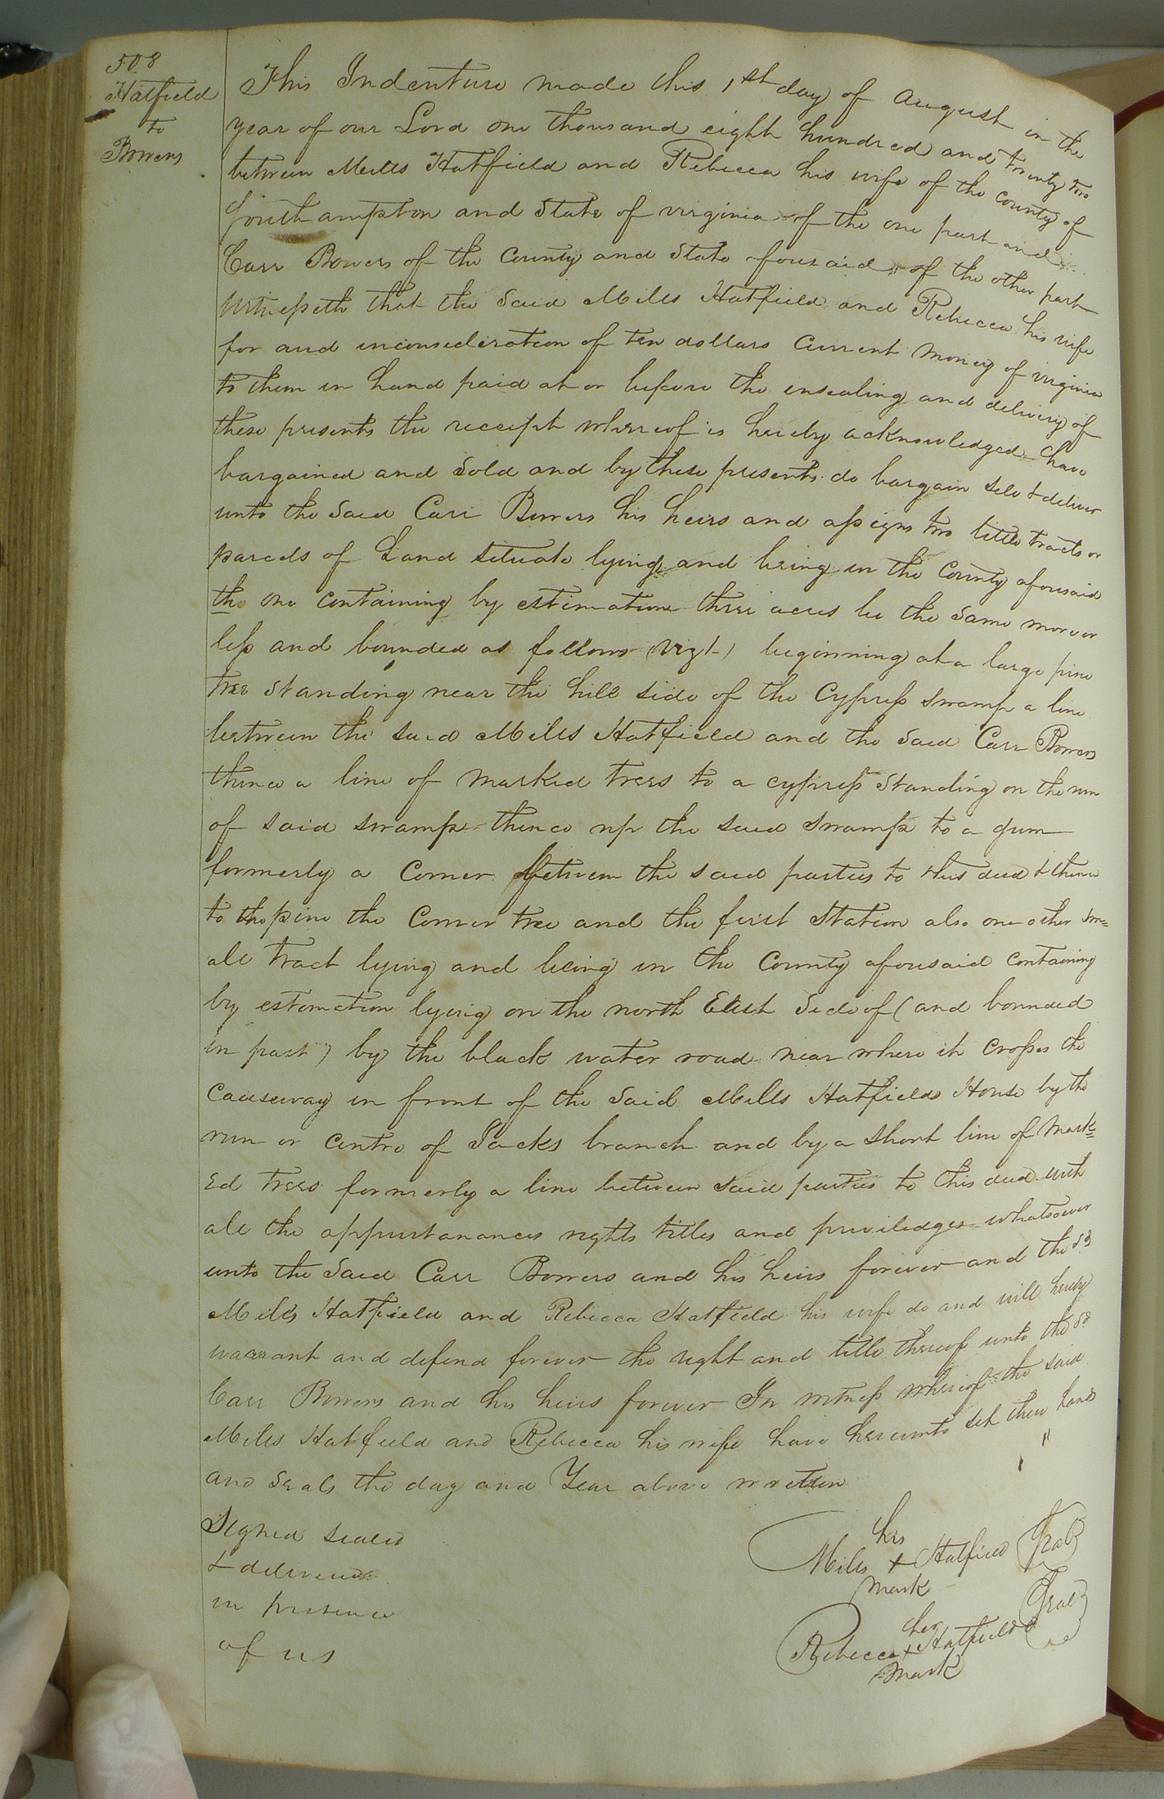 508
Hatfield
to
Bowers
This Indenture made this 1st day of august in the
year of our Lord one thousand eight hundred and twenty two
between Mills Hatfield and Rebecca his wife of the county of
Southampton and State of virginia of the one part and
Carr Bowers of the County and State foresaid of the other part
Witnesseth that the Said Mills Hatfield and Rebecca his wife
for and inconsideration of ten dollars Current money of virginia
to them in hand paid at or before the ensealing and delivery of
these presents the receipt whereof is hereby acknowledged have
bargained and Sold and by these presents do bargain sell & deliver
unto the Said Carr Bowers his heirs and assigns two little tracts or
parcels of Land Situate lying and being in the County aforesaid
the one Containing by estimation three acres be the Same more or
less and bounded as follows (vizt) beginning at a large pine
tree Standing near the hill side of the Cypress Swamp a line
between the said Mills Hatfield and the Said Carr Bowers
thence a line of marked trees to a cypress Standing on the run
of said swamp thence up the said Swamp to a gum
formerly a Corner Between the said parties to this deed & thence
to the pine the Corner tree and the first Station also one other Sm=
all tract lying and being in the County aforesaid Containing
by estimation lying on the north East Side of (and bounded
in part) by the black water road near where it crosses the
Causeway in front of the Said Mills Hatfields House by the
run or Centre of Jacks branch and by a Short line of Mark=
Ed trees formerly a line between said parties to this deed with
all the appurtanances rights titles and priviledges whatsoever
unto the Said Carr Bowers and his heirs forever and the sd
Mills Hatfield and Rebecca Hatfield his wife do and will hereby
warrant and defend forever the right and title thereof unto the sd
Carr Bowers and his heirs forever In witness whereof the said
Mills Hatfield and Rebecca his wife have hereunto Set their hands
and Seals the day and Year above written
Signed sealed
& delivered
in presence
of us
his
Mills + Hatfield Seal
mark
her
Rebecca + Hatfield Seal
mark